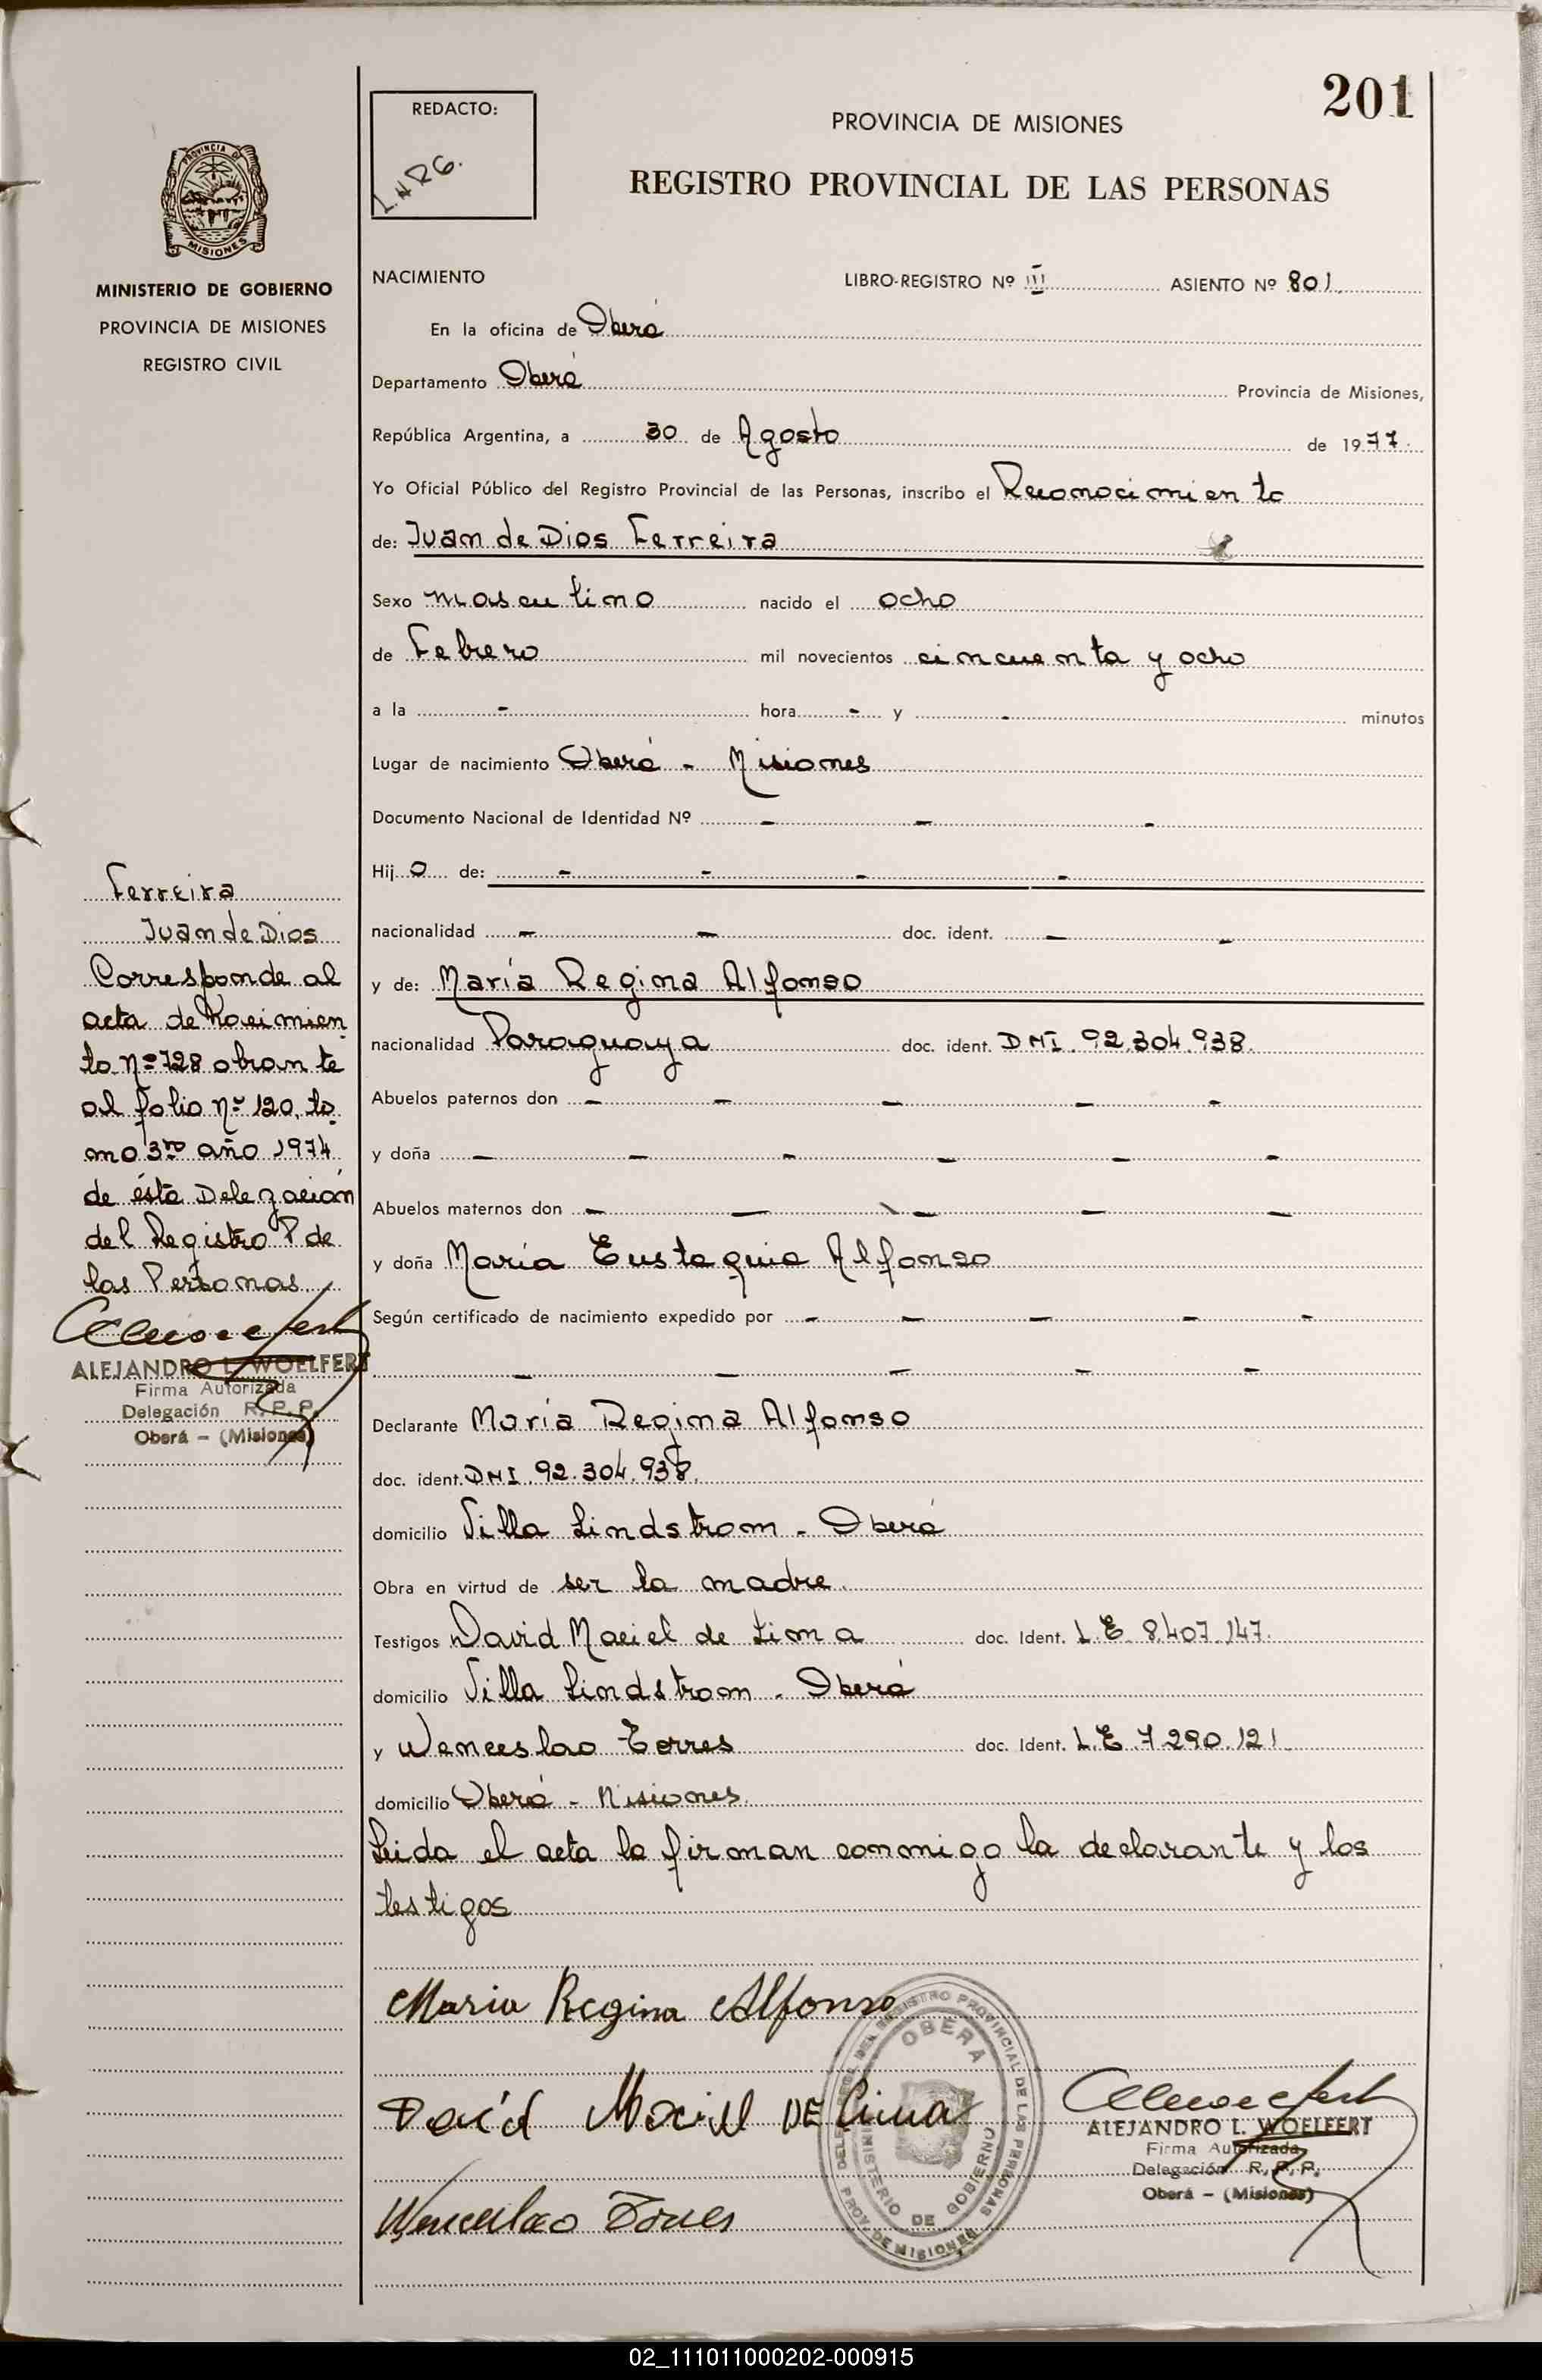 201
REDACTO:
PROVINCIA DE MISIONES
REGISTRO PROVINCIAL DE LAS PERSONAS
PROVINCIA DE
MISIONES
MINISTERIO DE GOBIERNO
PROVINCIA DE MISIONES
REGISTRO CIVIL
NACIMIENTO LIBRO-REGISTRO Nº III ASIENTO Nº 801
En la oficina de Oberá
Departamento Oberá Provincia de Misiones,
República Argentina, a 30 de Agosto de 1977.
Yo Oficial Público del Registro Provincial de las Personas, inscribo el Reconocimiento
de: Juan de Dios Ferreira
Sexo masculino nacido el ocho
de Febrero mil novecientos cincuenta y ocho
a la - hora - y - minutos
Lugar de nacimiento Oberá - Misiones
Documento Nacional de Identidad Nº - - -
Hij o de: - - - -
nacionalidad - - doc. ident. - -
y de: María Regina Alfonso
nacionalidad Paraguaya doc. ident. DNI. 92.304.938.
Abuelos paternos don - - - - -
y doña - - - - - -
Abuelos maternos don - - - - -
y doña María Eustaquia Alfonso
Según certificado de nacimiento expedido por - - - - -
- - - - -
Declarante María Regina Alfonso
doc. ident. DNI. 92.304.938.
domicilio Villa Lindstrom - Oberá
Obra en virtud de ser la madre.
Testigos David Maciel de Lima doc. Ident. L.E. 8.407.147.
domicilio Villa Lindstrom - Oberá
y Wenceslao Torres doc. Ident. L.E. 7.290.121
domicilio Oberá - Misiones.
Leida el acta la firman conmigo la declarante y los
testigos
Maria Regina Alfonso
David Maciel DE Lima
Wenceslao Torres
DELEGACION DEL REGISTRO PROVINCIAL DE LAS PERSONAS
OBERA
MINISTERIO DE GOBIERNO
PROV. DE MISIONES
ALEJANDRO L. WOELFERT
Firma Autorizada
Delegación R.P.P.
Oberá - (Misiones)
Ferreira
Juan de Dios
Corresponde al
acta de Nacimien
to nº 728 obrante
al folio nº 120, to
mo 3ro año 1974
de ésta Delegación
del Registro P de
las Personas.
ALEJANDRO L. WOELFERT
Firma Autorizada
Delegación R.P.P.
Oberá - (Misiones)
02_111011000202-000915